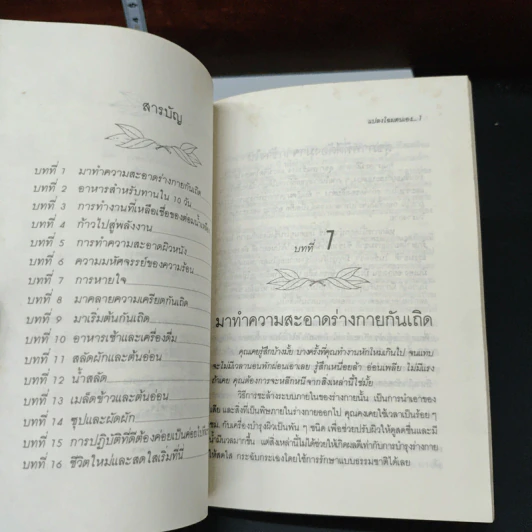 สารบัญ
บทที่ 1 มาทำความสะอาดร่างกายกันเถิด
บทที่ 2 อาหารสำหรับทานใน 10 วัน
บทที่ 3 การทำงานที่เหลือเชื่อของต่อมน้ำเหลือง
บทที่ 4 ก้าวไปสู่พลังงาน
บทที่ 5 การทำความสะอาดผิวหนัง
บทที่ 6 ความมหัศจรรย์ของความร้อน
บทที่ 7 การหายใจ
บทที่ 8 มาคลายความเครียดกันเถิด
บทที่ 9 มาเริ่มต้นกันเถิด
บทที่ 10 อาหารเช้าและเครื่องดื่ม
บทที่ 11 สลัดผักและต้นอ่อน
บทที่ 12 น้ำสลัด
บทที่ 13 เมล็ดข้าวและต้นอ่อน
บทที่ 14 ซุปและผัดผัก
บทที่ 15 การปฏิบัติที่ดีต้องค่อยเป็นค่อยไป
บทที่ 16 ชีวิตใหม่และสดใสเริ่มที่นี่
แปลงโฉมตนเอง...7
บทที่ 1
มาทำความสะอาดร่างกายกันเถิด
คุณเคยรู้สึกบ้างมั้ย บางครั้งที่คุณทำงานหักโหมเกินไป จนแทบ
จะไม่มีเวลานอนพักผ่อนเอาเลย รู้สึกเหนื่อยล้า อ่อนเพลีย ไม่มีแรง
คุณต้องการจะหลีกหนีจากสิ่งเหล่านี้ใช่มั้ย
วิธีการชะล้างระบบภายในของร่างกายนั้น เป็นการนำเอาของ
และสิ่งที่เป็นพิษภายในร่างกายออกไป คุณคงเคยใช้เวลาเป็นร้อยๆ
กับเครื่องบำรุงผิวเป็นพันๆ ชนิด เพื่อช่วยปรับผิวให้ดูสดชื่นและมี
น้ำมีนวลมากขึ้น แต่สิ่งเหล่านี้ไม่ได้ช่วยให้เกิดผลดีเท่ากับการบำรุงร่างกาย
ให้สดใส กระฉับกระเฉงโดยใช้การรักษาแบบธรรมชาติได้เลย